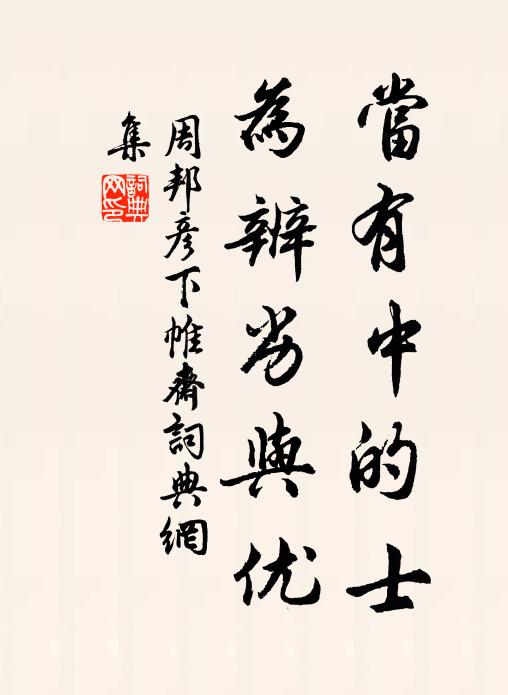 當有中的士
為辨劣與优
周邦彦下帷齋詞典網
集
詞典網印